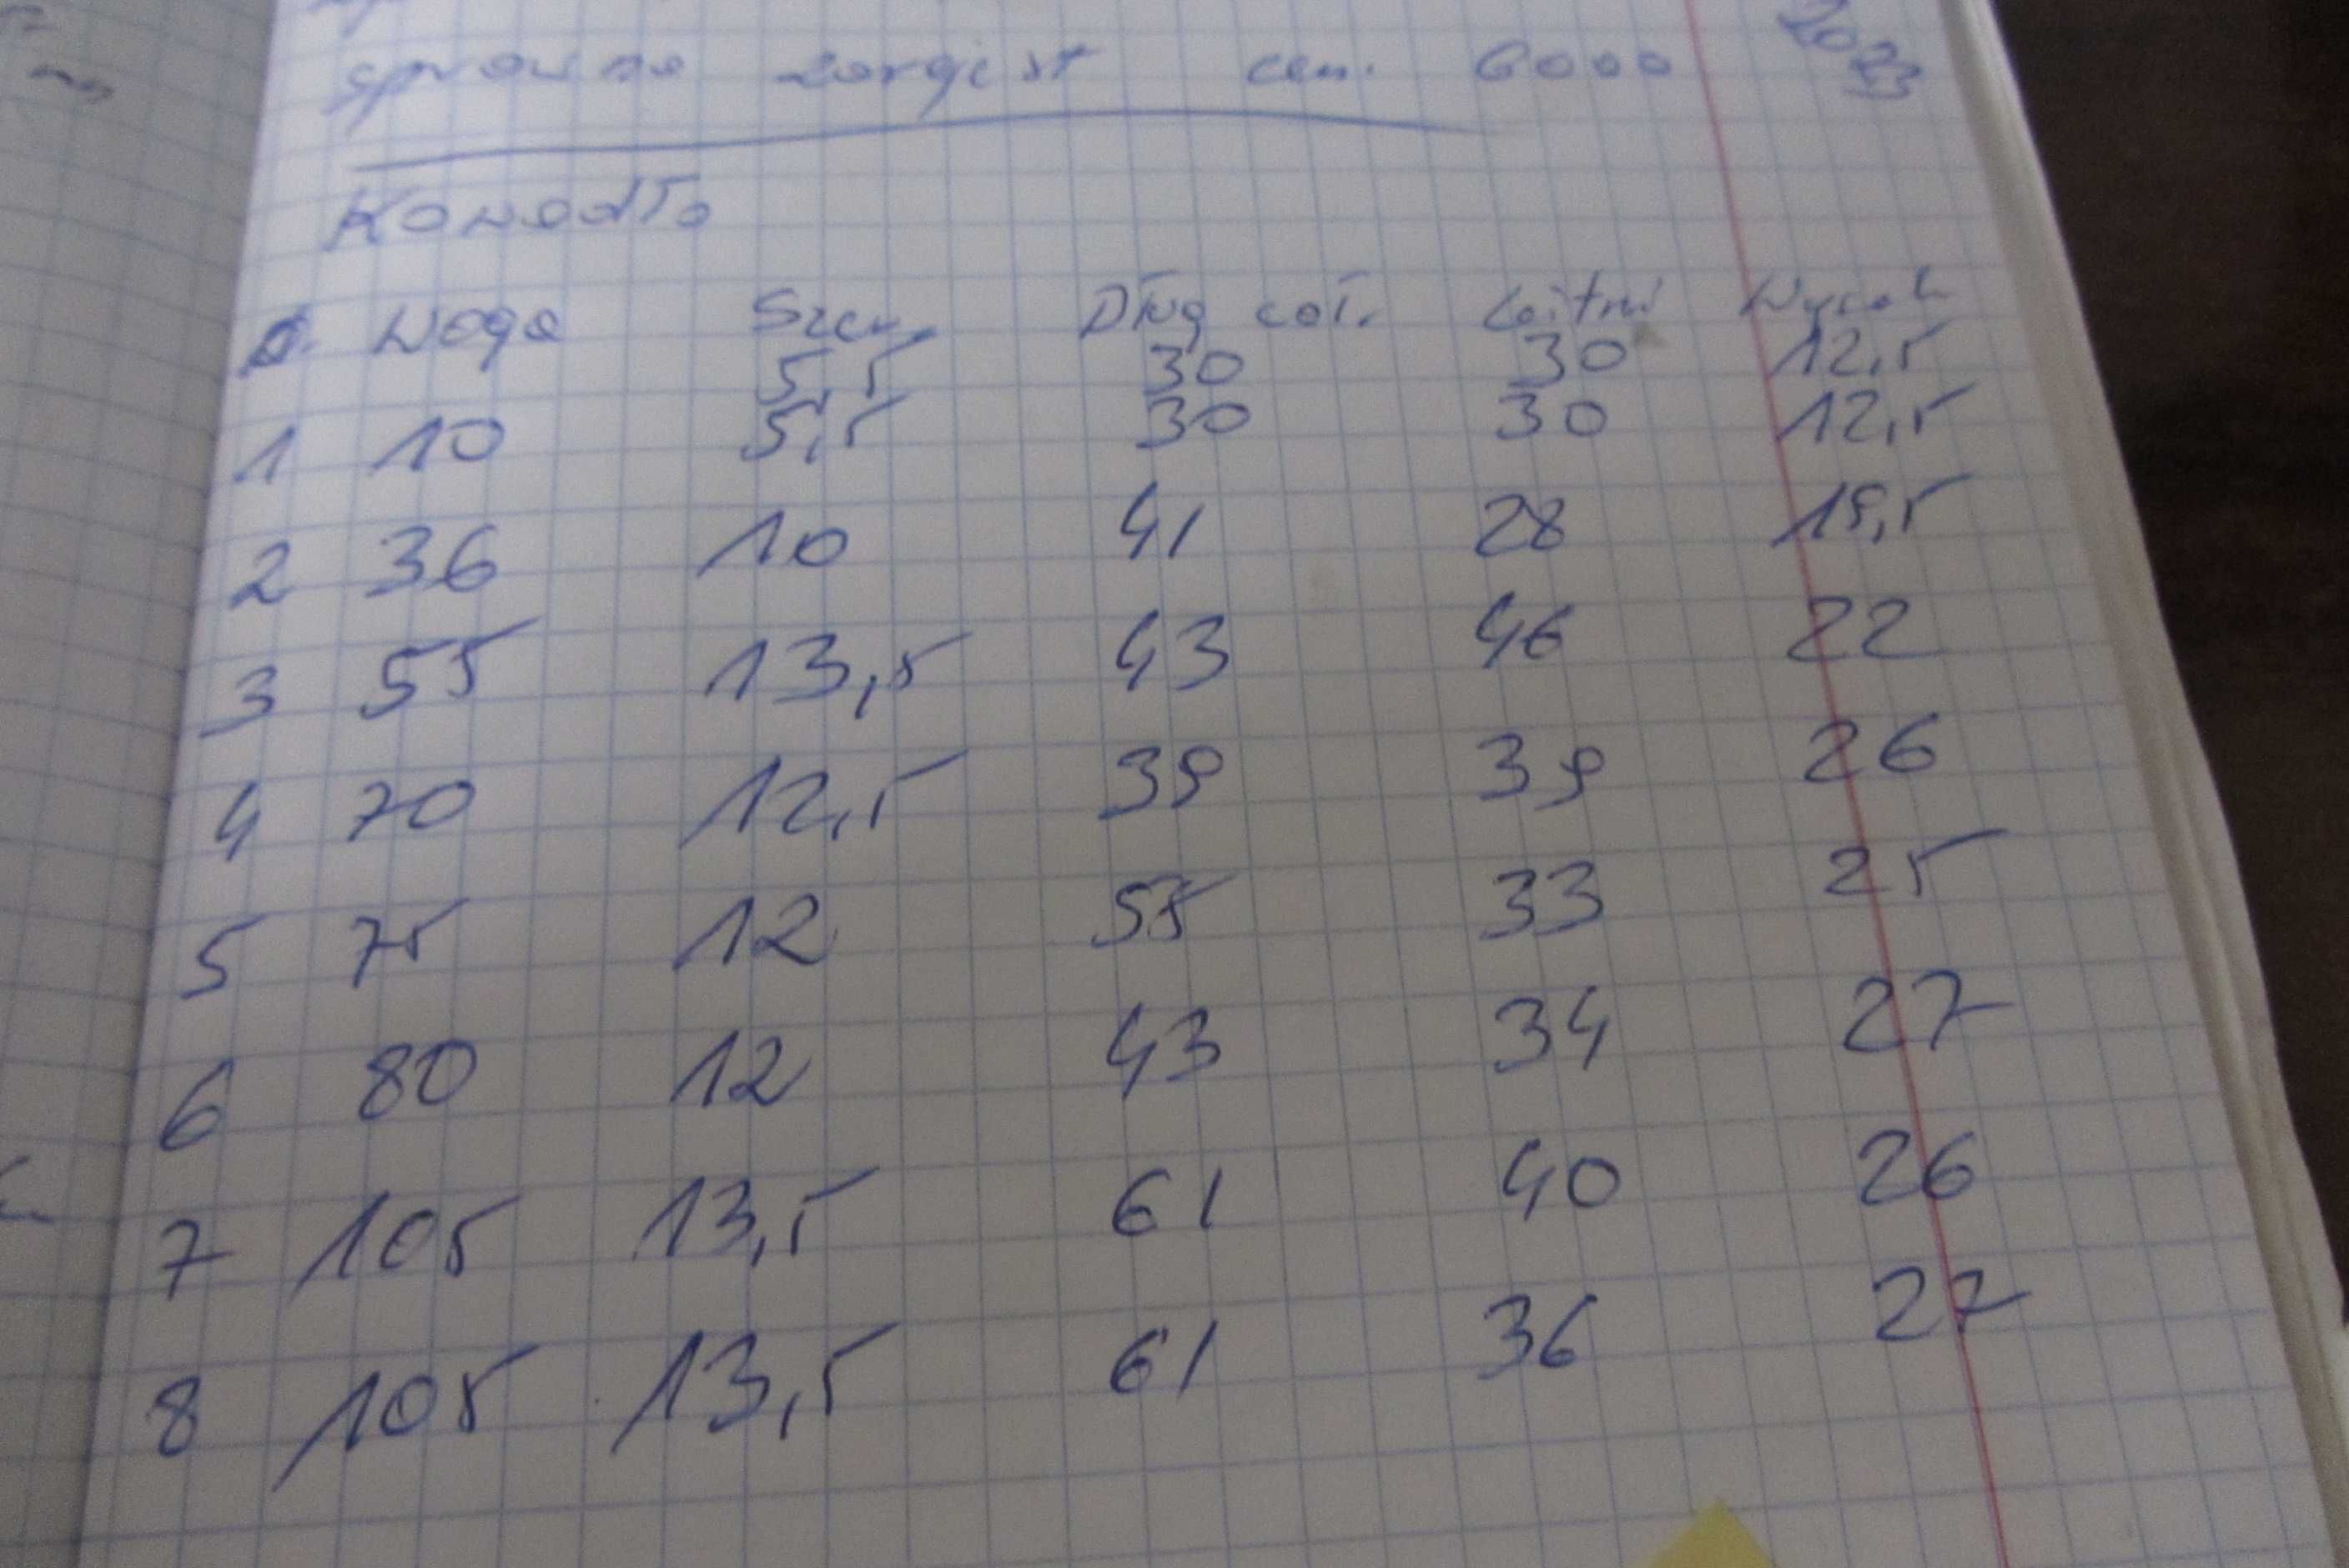 cen. 6000 2023
Kowadło
Waga Szer. Dług cał. Wysok
5,5 30 30 12,5
1 10 5,5 30 30 12,5
2 36 10 41 28 19,5
3 55 13,5 43 46 22
4 70 12,5 39 39 26
5 75 12 55 33 25
6 80 12 43 34 27
7 105 13,5 61 40 26
8 105 13,5 61 36 27